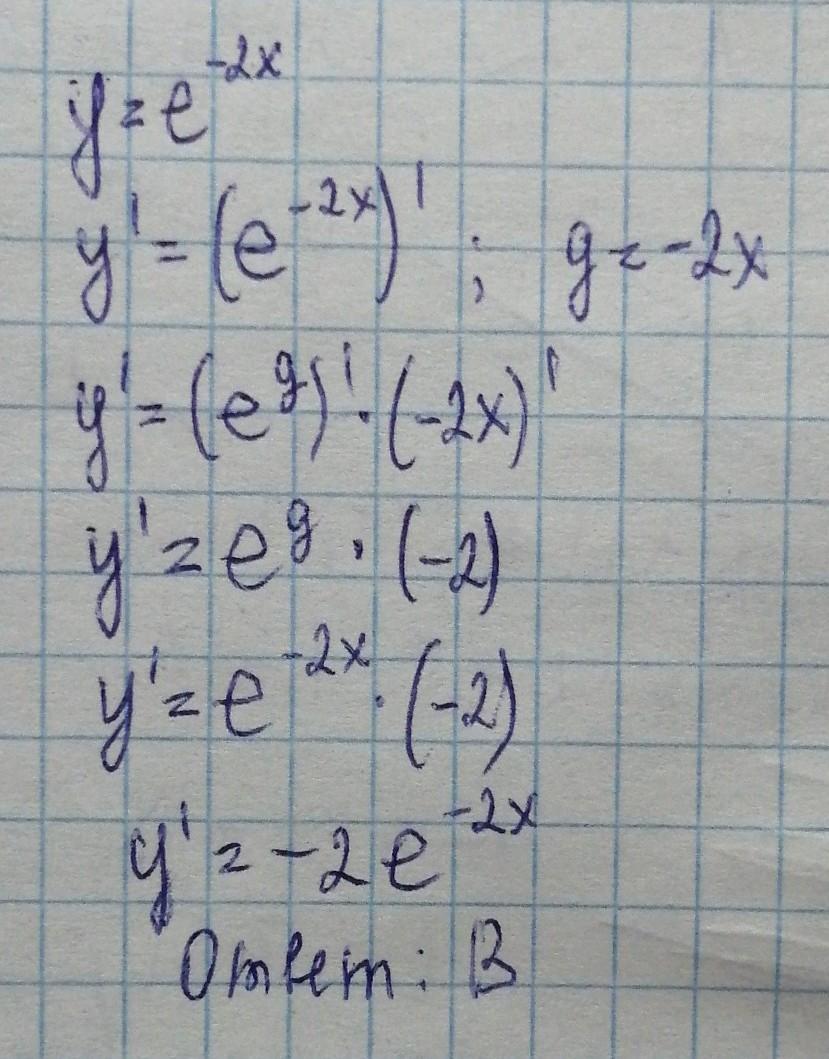 y = e^{-2x}
y' = (e^{-2x})' ; g = -2x
y' = (e^g)' · (-2x)'
y' = e^g · (-2)
y' = e^{-2x} · (-2)
y' = -2e^{-2x}
Ответ: В